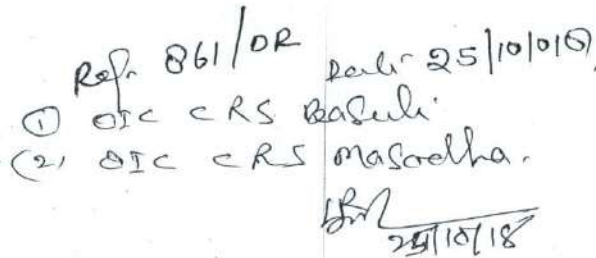 Ref. 861/DR Date 25/10/018
① OIC CRS Basuli
(2) OIC CRS Masodha.
25/10/18